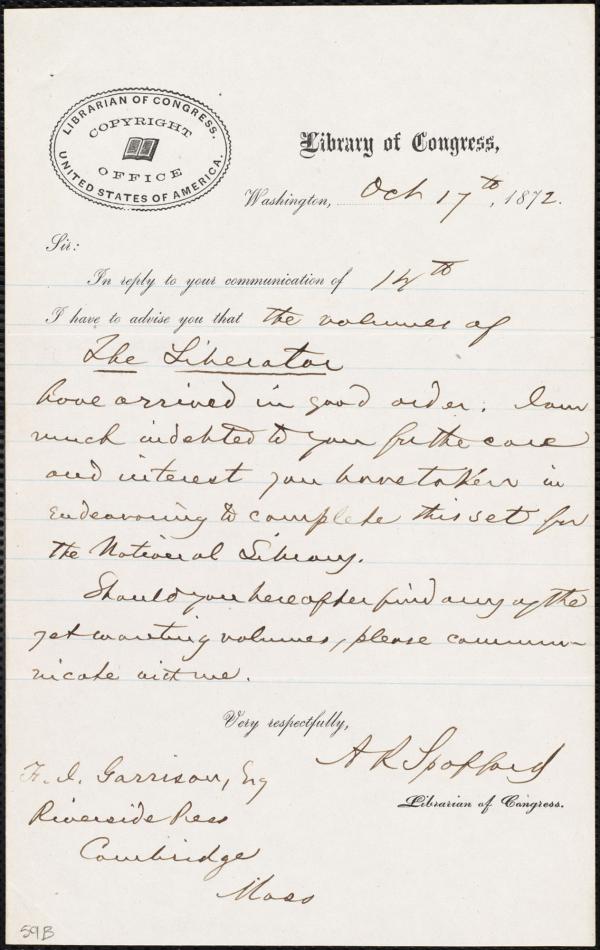 LIBRARIAN OF CONGRESS.
COPYRIGHT
OFFICE
UNITED STATES OF AMERICA.
Library of Congress,
Washington, Oct 17th, 1872.
Sir:
In reply to your communication of 14th
I have to advise you that the volumes of
The Liberator
have arrived in good order. I am
much indebted to you for the care
and interest you have taken in
endeavoring to complete this set for
the National Library.
Should you hereafter find any of the
yet wanting volumes, please commu-
nicate with me.
Very respectfully,
A R Spofford
Librarian of Congress.
F. J. Garrison, Esq
Riverside Press
Cambridge
Mass
59B